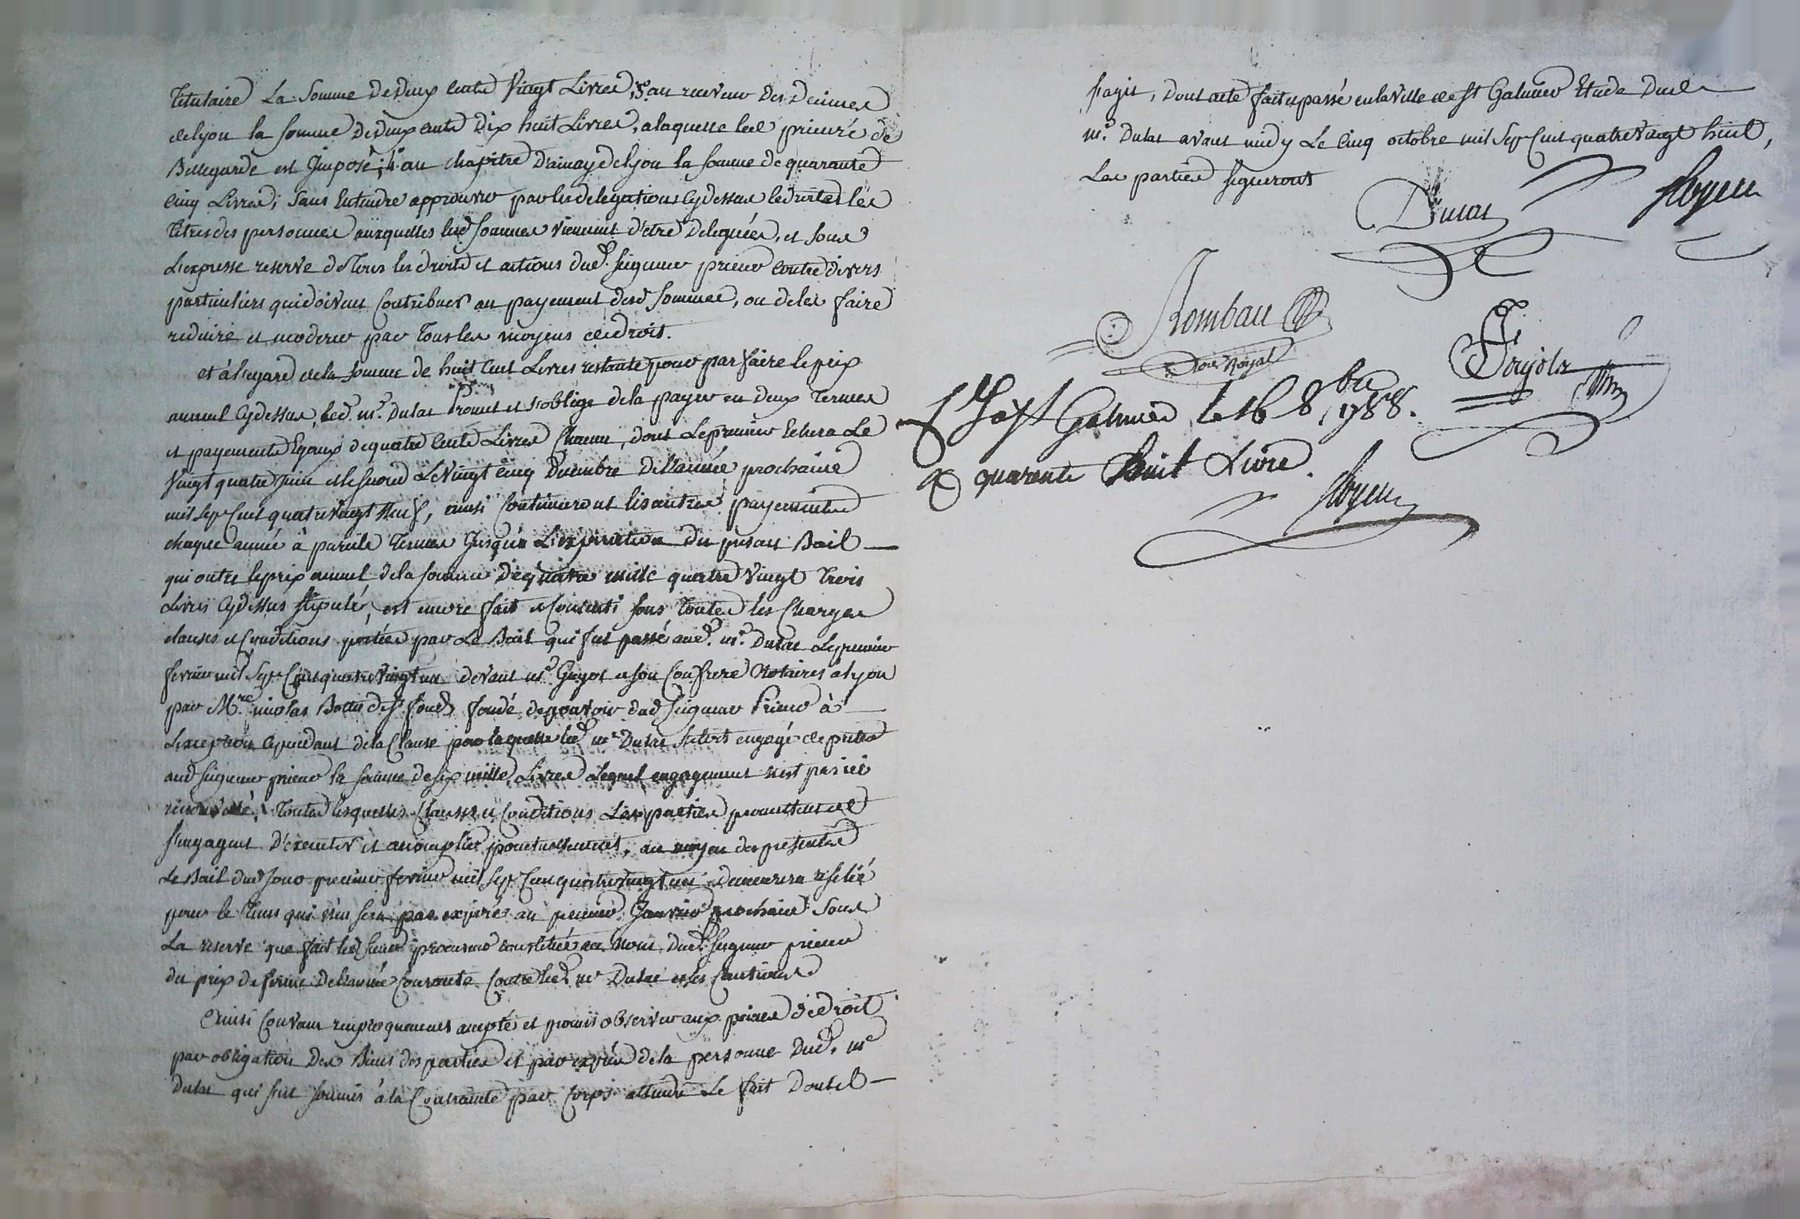 titulaire La Somme de Deux cents Vingt Livres, 3°. au receveur Des Decimes
de lyon la somme De deux cents Dix huit Livres, a laquelle led. prieuré de
Bellegarde est Imposé; 4°. au chapitre D'ainay de lyon la somme de quarante
cinq Livres; Sans Entendre approuver par les delegations Cy dessus les
titres des personnes auxquelles lesd. sommes viennent d'etre Deleguées, et sous
L'expresse reserve de Tous les droits et actions dud. seigneur prieur contre divers
particuliers qui doivent Contribuer au payement desd. sommes, ou de les faire
reduire et moderer par Tous les moyens de droit.
et à l'egard de la somme de huit Cent Livres restante pour parfaire le prix
annuel Cy dessus, led. m.e Dulac Promet et s'oblige de la payer en deux Termes
et payements Egaux de quatre Cents Livres Chacun, dont Le premier Echera Le
Vingt quatre juin et le second Le Vingt cinq Decembre De l'année prochaine
mil Sept Cent quatre vingt Neuf, ainsi Continueront les autres payements
chaque année à pareils Termes Jusqu'à L'expiration du present Bail
qui outre le prix annuel de la somme De quatre mille quatre Vingt Trois
Livres Cy dessus stipulé, est encore fait et Consenti sous Toutes les Charges
clauses et Conditions portées par Le Bail qui fut passé aud. m.e Dulac Le premier
fevrier mil Sept Cent quatre Vingt un devant m.e Guyot et son Confrere Notaires a lyon
par M.re nicolas Bottu de S.t fonds fondé de pouvoir dud. Seigneur Prieur à
L'exception Cependant de la Clause par laquelle led. m.e Dulac s'etoit engagé de preter
aud. Seigneur prieur la somme de six mille Livres Lequel engagement n'est par ici
renouvellé; Toutes lesquelles Clauses et Conditions Les parties promettent et
s'engagent D'executer et accomplir ponctuellement, au moyen des presentes
Le Bail dud. jour premier fevrier mil sept Cent quatre vingt un demeurera resilié
pour le Tems qui n'en sera pas expiré au premier Janvier prochain Sous
La reserve que fait led. sieur procureur constitué au Nom dud. Seigneur prieur
du prix de ferme De l'année Courante Contre led. m.e Dulac et ses Cautions
Ainsi Convenu reciproquement accepté et promis observer aux peines de droit
par obligation Des Biens des parties et par exprés de la personne Dud. m.e
Dulac qui s'est soumis à la Contrainte par Corps attendu Le fait Dont il
s'agit, Dont acte fait et passé en la Ville de St Galmier Etude Dud.
m.e Dulac avant midy Le Cinq octobre mil Sept Cent quatre vingt huit,
Les parties signeront
Dulac
Rombau
No.re Royal
C. à St Galmier le 16 8.bre 1788.
R quarente huit Livre.